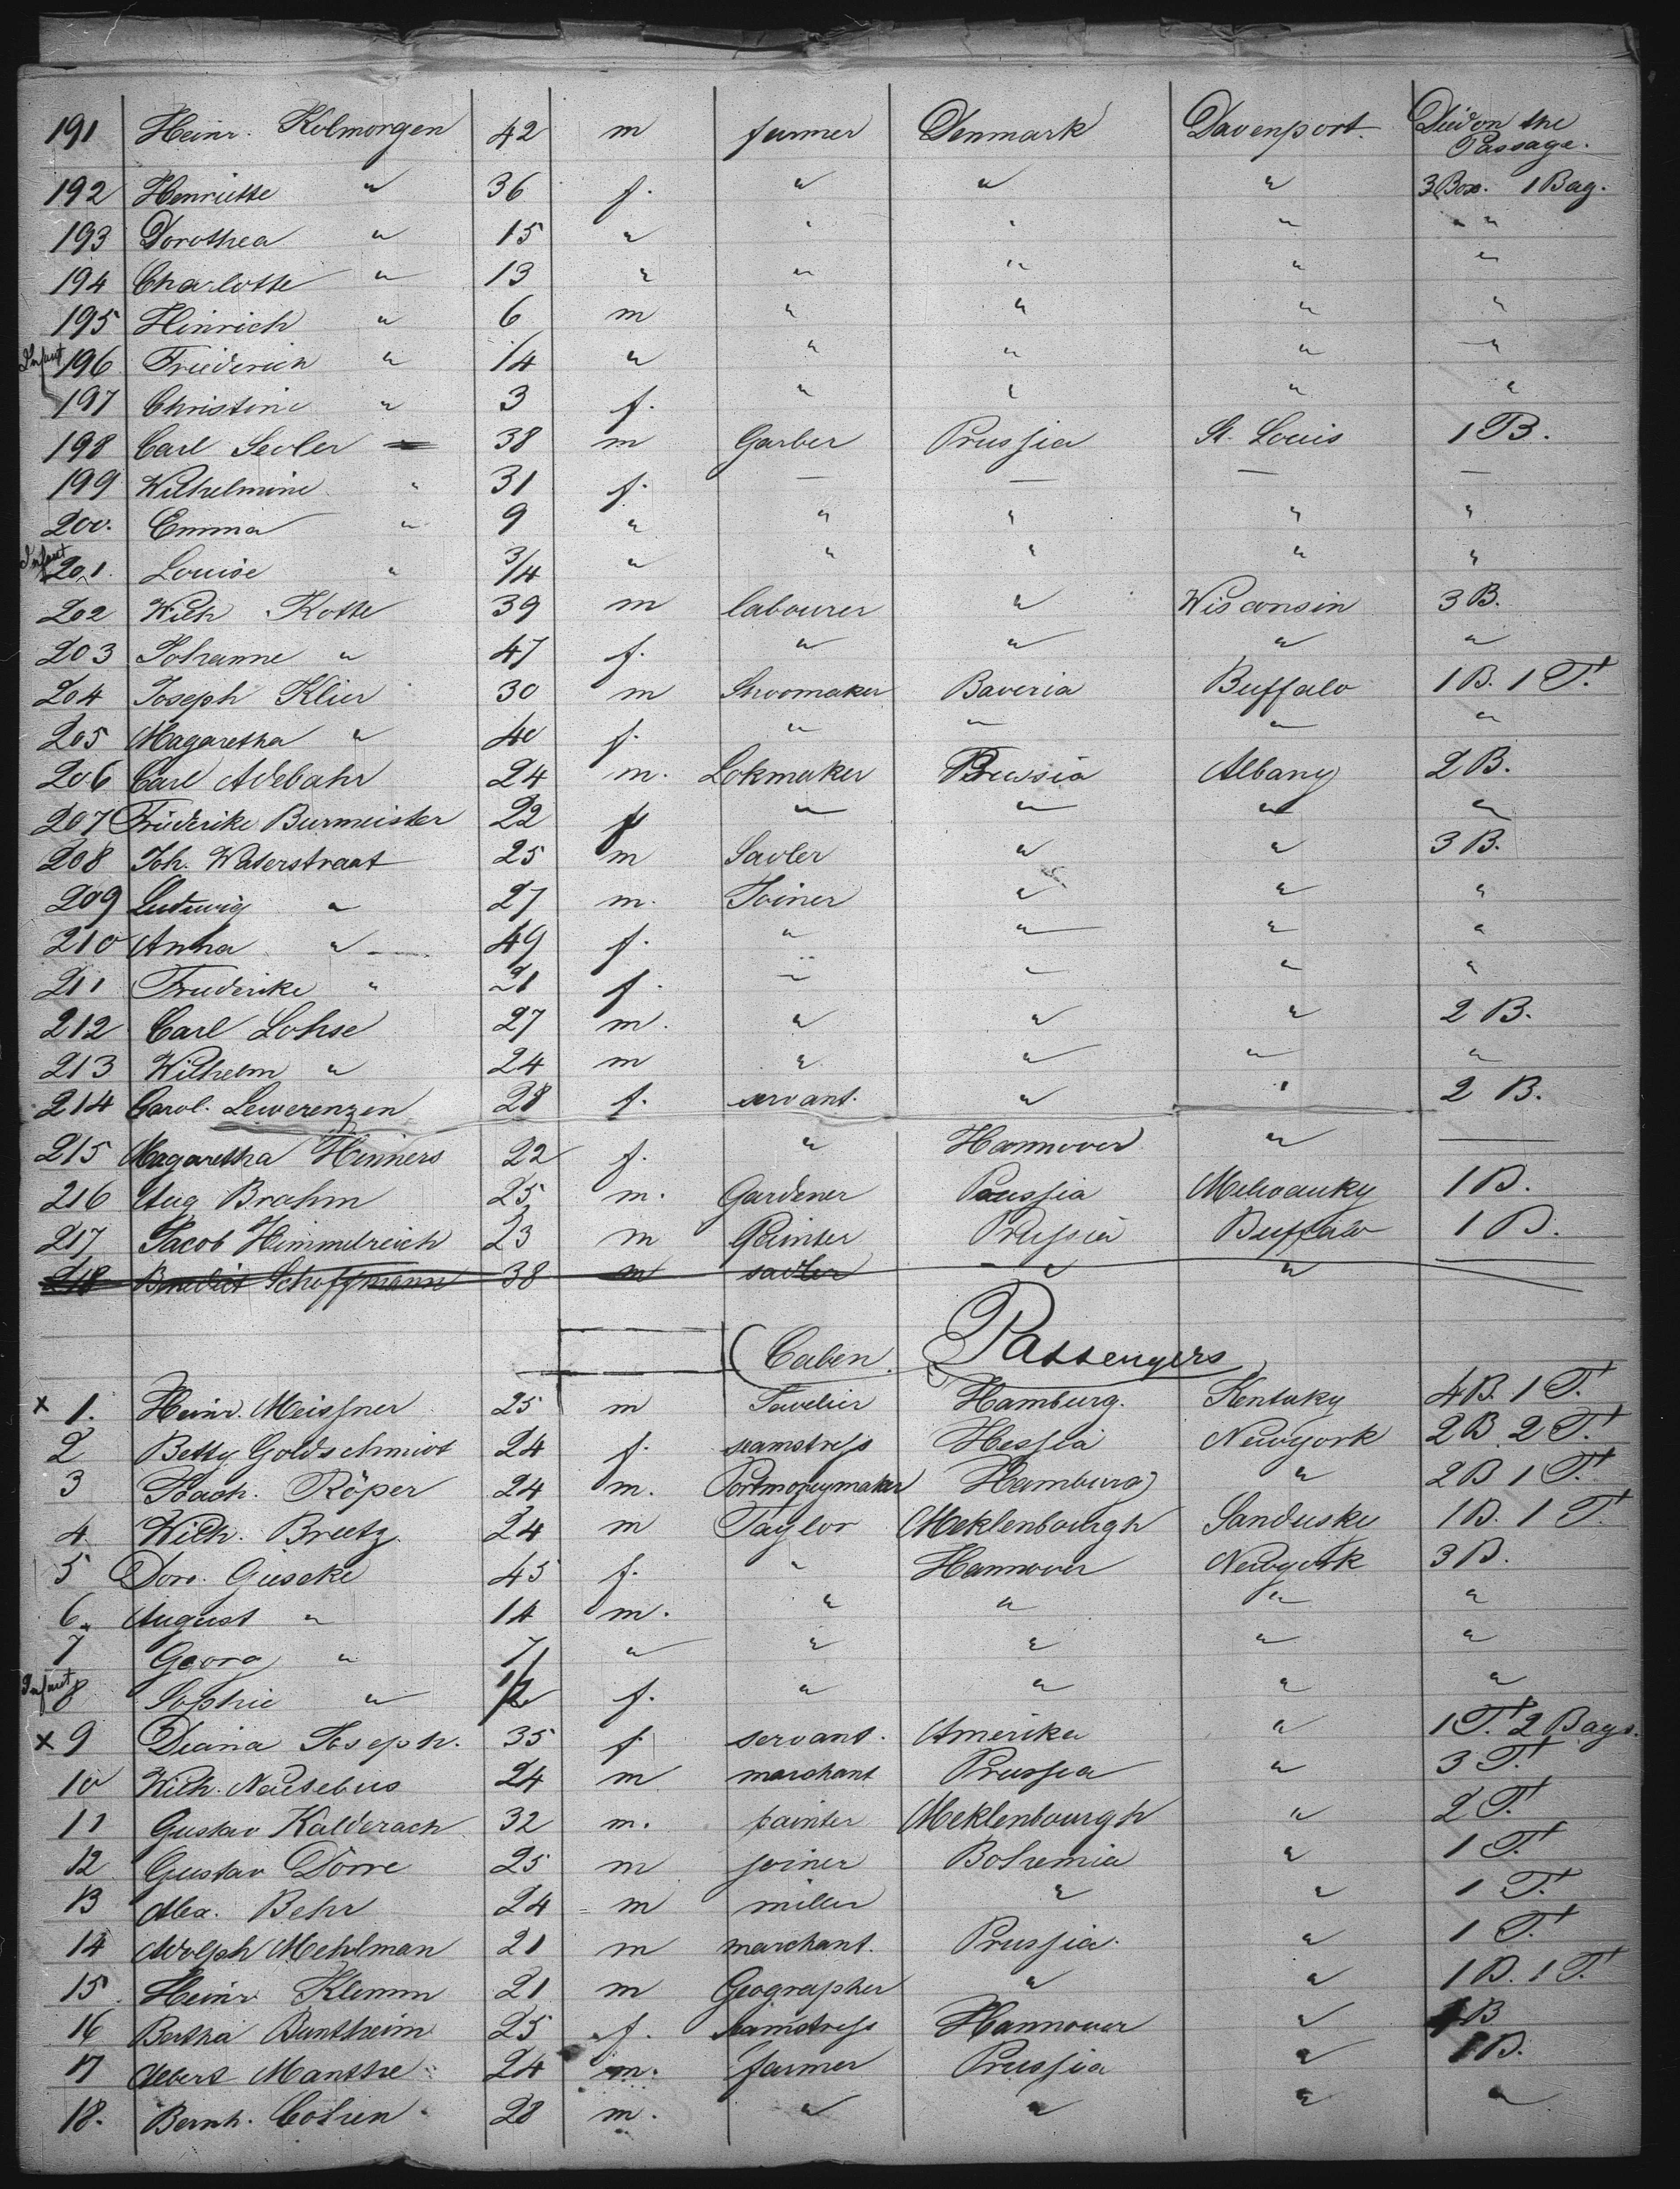 191 Heinr. Kolmorgen 42 m farmer Denmark Davenport. Died on the Passage.
192 Henriette " 36 f. " " " 3 Box. 1 Bag.
193 Dorothea " 15 " " " " " "
194 Charlotte " 13 " " " " "
195 Hinrich " 6 m " " " "
Infant 196 Friederich " 1/4 " " " " "
197 Christine " 3 f. " " " "
198 Carl Seoler 38 m Garber Prussia St. Louis 1 B.
199 Wilhelmine " 31 f. — — — —
200. Emma " 9 " " " " "
Infant 201. Louise " 3/4 " " " " "
202 Wilh Kotte 39 m labourer " Wisconsin 3 B.
203 Johanne " 47 f. " " " "
204 Joseph Klier 30 m Shoomaker Baveria Buffalo 1 B. 1 T.
205 Magaretha " 40 f. " " " "
206 Carl Adebahr 24 m. Lokmaker Prussia Albany 2 B.
207 Friederike Burmeister 22 f " " " "
208 Joh. Waterstraat 25 m Sadler " " 3 B.
209 Ludwig " 27 m. Joiner " " "
210 Anna " 49 f. " " " "
211 Friederike " 21 f. " " " "
212 Carl Lohse 27 m. " " " 2 B.
213 Wilhelm " 24 m " " " "
214 Carol. Lewerenzen 28 f. servant. " " 2 B.
215 Magaretha Hinners 22 f. " Hannover " —
216 Aug Brahm 25 m. Gardener Prussia Milwauky 1 B.
217 Jacob Himmelreich 23 m Painter Prussia Buffalo 1 B.
218 Benedict Schoffmann 38 m sadler " "
Caben Passengers
x 1. Heinr. Meissner 25 m Juvelier Hamburg. Kentuky 4 B. 1 T.
2 Betty Goldschmidt 24 f. seamstress Hessia Newyork 2 B. 2 T.
3 Joach. Röper 24 m. Portmoneymaker Hamburg " 2 B 1 T.
4. Wilh. Breetz. 24 m Taylor Meklenbourgh Sandusky 1 B. 1 T.
5 Dor. Gieseke 45 f. " Hannover Newyork 3 B.
6. August " 14 m. " " " "
7 Georg " 7 " " " " "
Infant 8 Sophie " 1/2 f. " " " "
x 9 Diana Joseph. 35 f servant. Amerika " 1 T. 2 Bags.
10 Wilh. Nausebus 24 m marchant Prussia " 3 T.
11 Gustav Kalderach 32 m. painter Meklenbourgh " 2 T.
12 Gustav Dörre 25 m joiner Bohemia " 1 T.
13 Alex. Behr 24 m miller " " 1 T.
14 Adolph Mehlman 21 m marchant. Prussia. " 1 T.
15 Heinr. Klemm 21 m Geographer " " 1 B. 1 T.
16 Bertha Bentheim 25 f. seamstress Hannover " 1 B
17 Albert Manthe 24 m. farmer Prussia " 1 B.
18. Bernh. Cohen. 28 m. " " " "